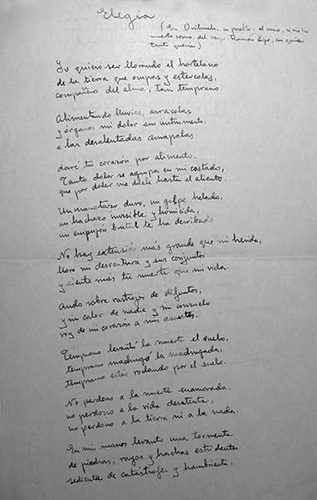 Elegía
(En Orihuela, su pueblo y el mío, se me ha
muerto como del rayo Ramón Sijé, con quien
tanto quería)
Yo quiero ser llorando el hortelano
de la tierra que ocupas y estercolas,
compañero del alma, tan temprano.
Alimentando lluvias, caracolas
y órganos mi dolor sin instrumento,
a las desalentadas amapolas
daré tu corazón por alimento.
Tanto dolor se agrupa en mi costado,
que por doler me duele hasta el aliento.
Un manotazo duro, un golpe helado,
un hachazo invisible y homicida,
un empujón brutal te ha derribado.
No hay extensión más grande que mi herida,
lloro mi desventura y sus conjuntos
y siento más tu muerte que mi vida.
Ando sobre rastrojos de difuntos,
y sin calor de nadie y sin consuelo
voy de mi corazón a mis asuntos.
Temprano levantó la muerte el vuelo,
temprano madrugó la madrugada,
temprano estás rodando por el suelo.
No perdono a la muerte enamorada,
no perdono a la vida desatenta,
no perdono a la tierra ni a la nada.
En mis manos levanto una tormenta
de piedras, rayos y hachas estridentes
sedienta de catástrofes y hambrienta.